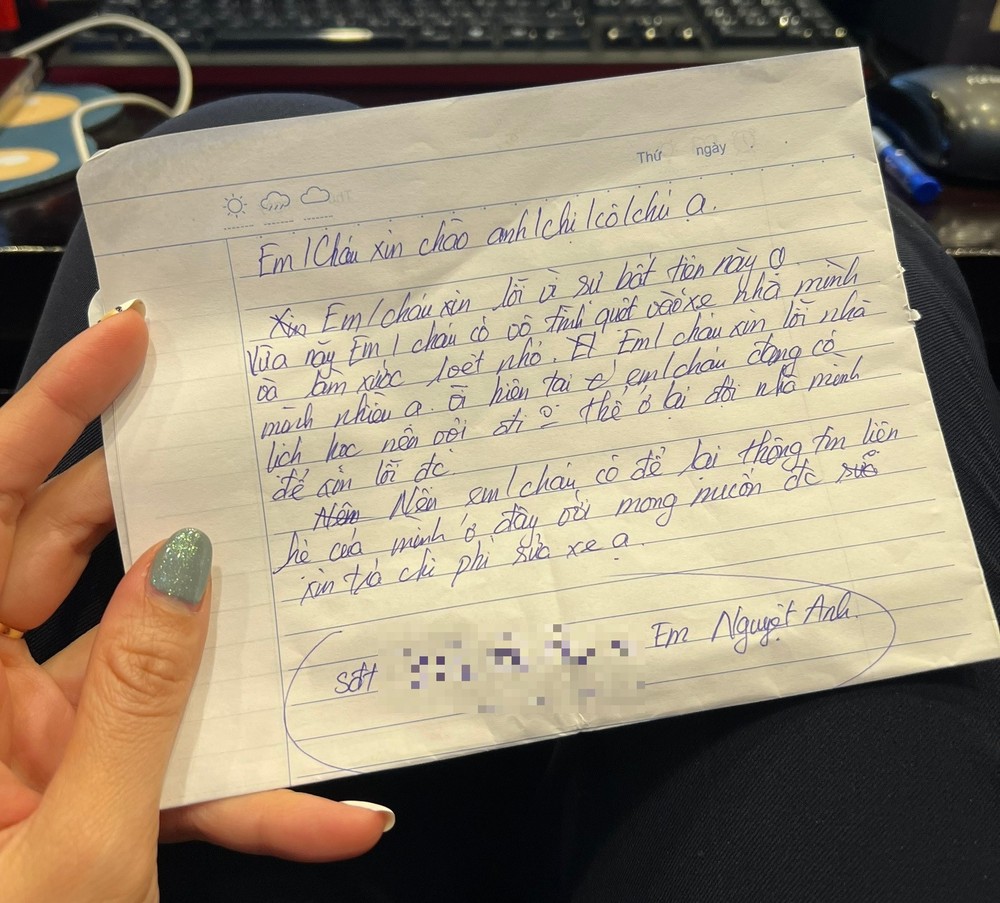 Thứ ngày
Em/Cháu xin chào anh/chị/cô/chú ạ.
Xin Em/cháu xin lỗi vì sự bất tiện này ạ
Vừa nãy Em/cháu có vô tình quệt vào xe nhà mình
và làm xước 1 vết nhỏ. Em/cháu xin lỗi nhà
mình nhiều ạ. Vì hiện tại em/cháu đang có
lịch học nên vội đi thể ở lại đợi nhà mình
để xin lỗi đc
Nên Nên em/cháu có để lại thông tin liên
hệ của mình ở đây với mong muốn đc sửa
xin trả chi phí sửa xe ạ.
sđt Em Nguyệt Anh.